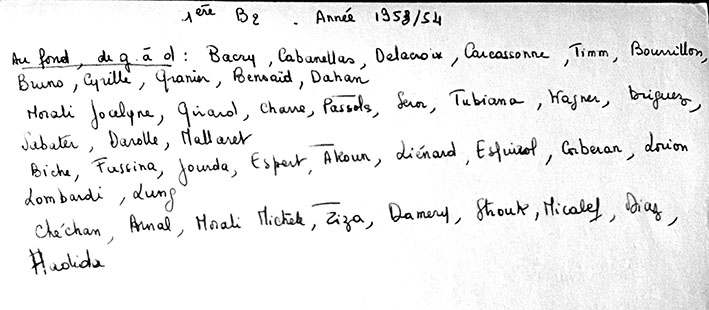 1ère B2 . Année 1953/54
Au fond, de g. à d : Bacry, Cabanellas, Delacroix, Carcassonne, Timm, Bourrillon,
Bruno, Cyrille, Granier, Bensaïd, Dahan
Morali Jocelyne, Girard, Charre, Passols, Seror, Tubiana, Wagner, Driguez,
Sabater, Darolle, Mallaret
Biche, Fussina, Jourda, Espert, Akoun, Liénard, Esquirol, Corberan, Lorion
Lombardi, Lung
Chéchan, Arnal, Morali Michèle, Ziza, Damery, Shouk, Micalef, Diaz,
Hadida